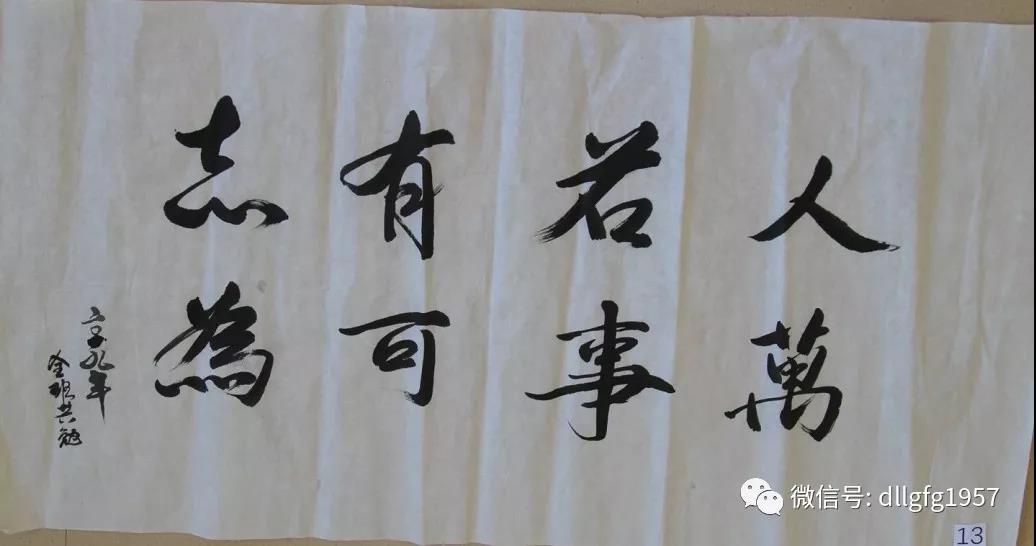 人若有志
萬事可為
年
全班共勉
微信号: dllgfg1957
13